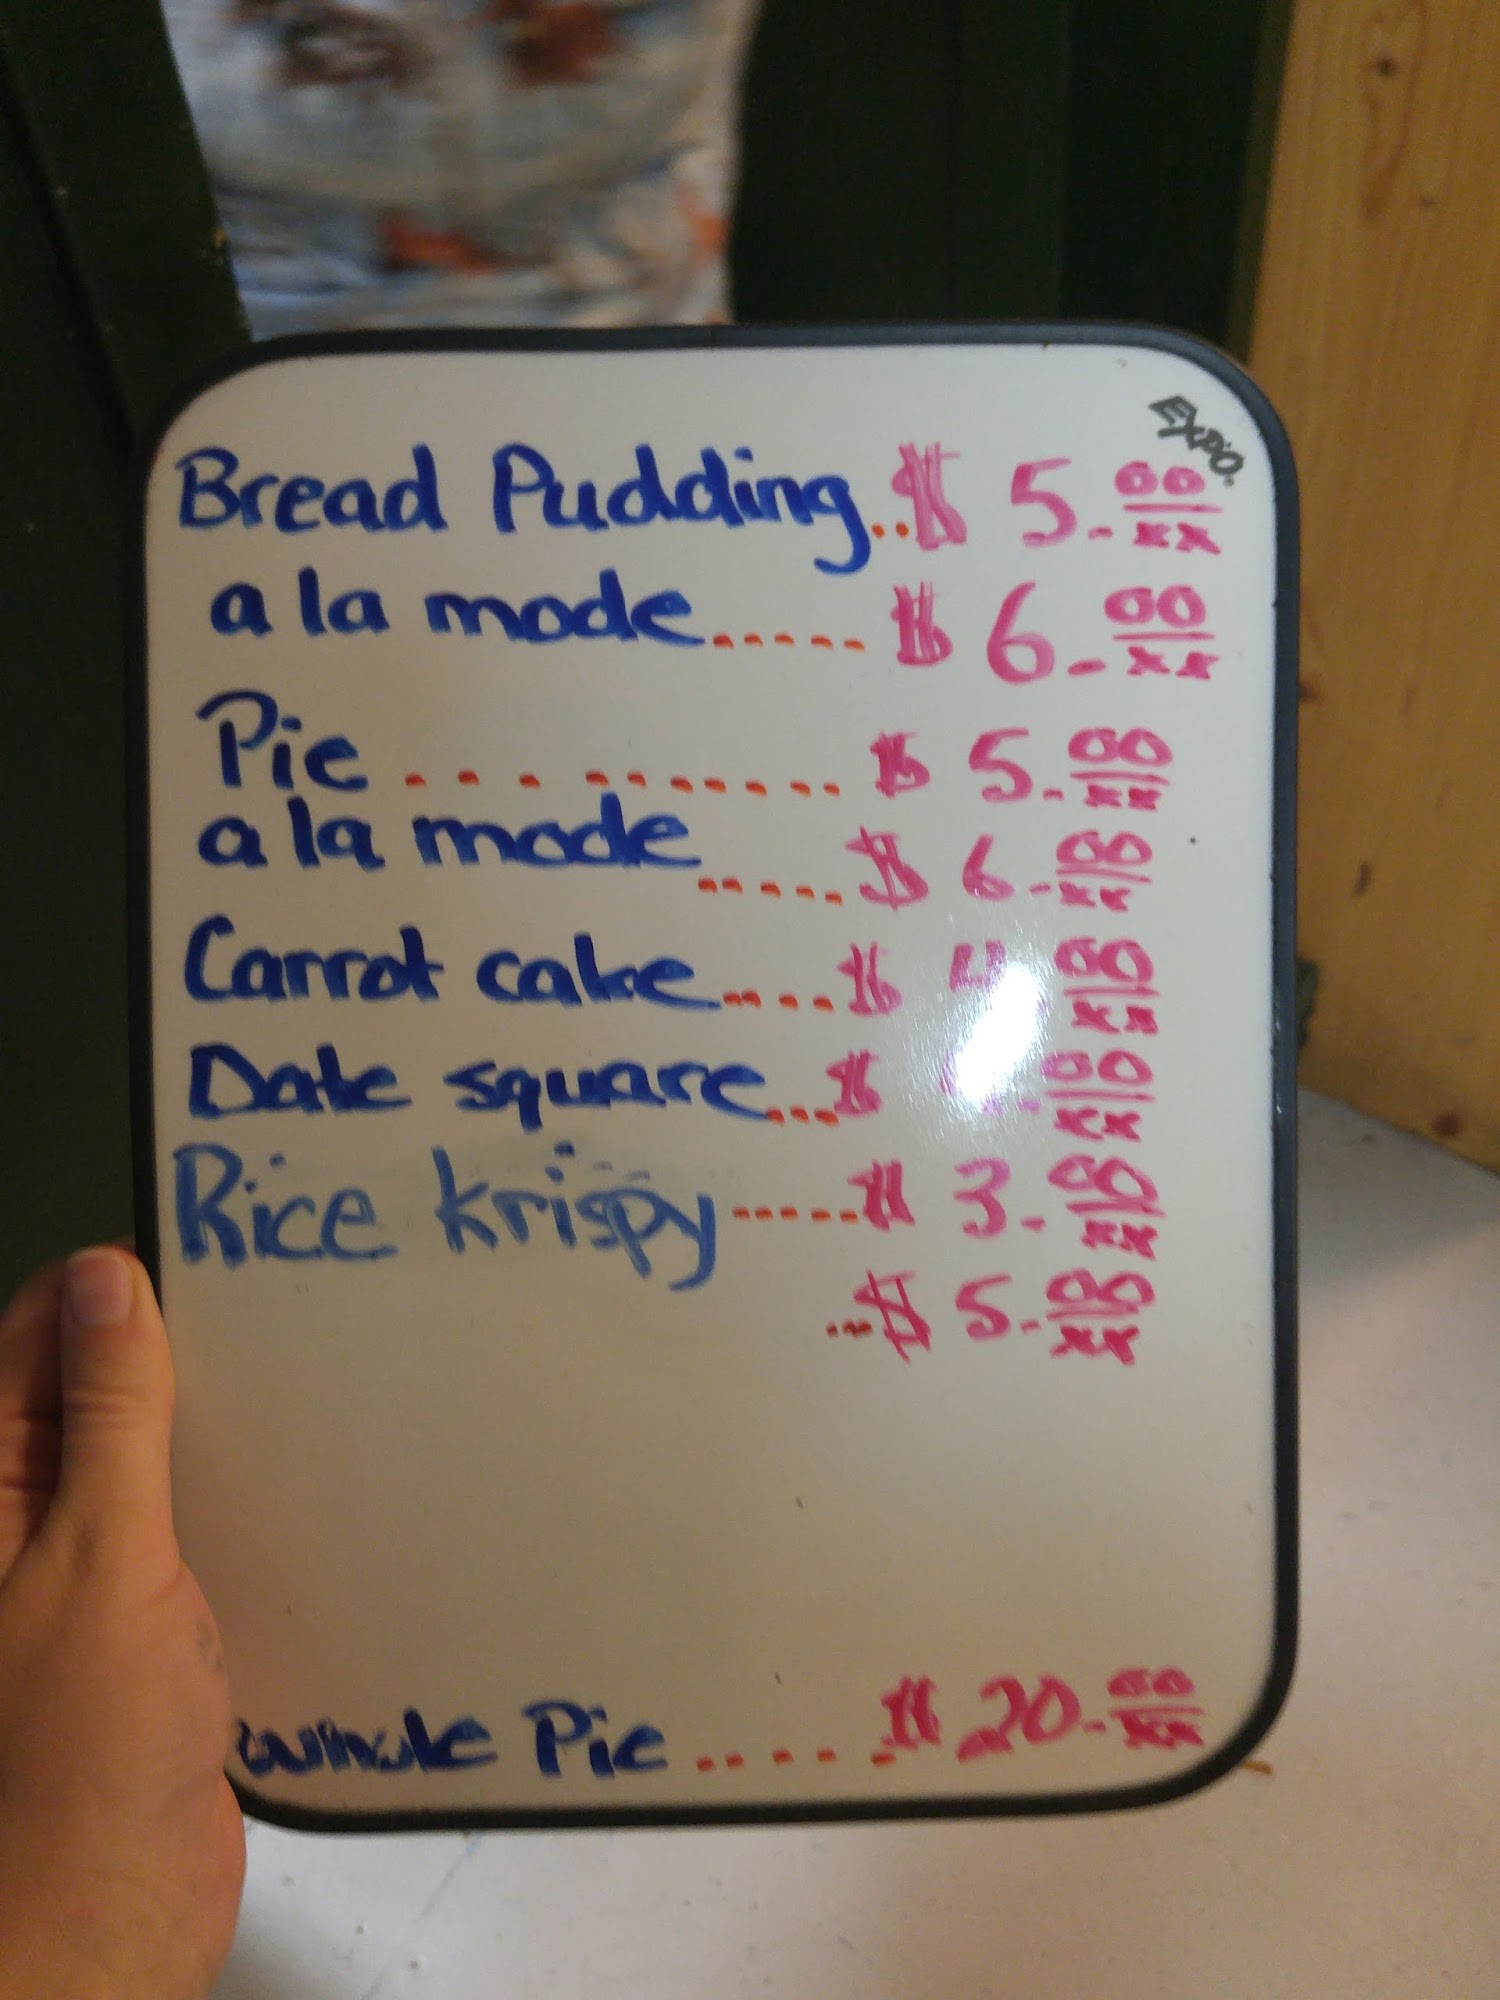 EXPO.
Bread Pudding..$ 5-00/xx
a la mode.....$ 6-00/xx
Pie..........$ 5-00/xx
a la mode.....$ 6-00/xx
Carrot cake....$ 4-00/xx
Date square...$ -00/xx
Rice krispy.....$ 3-00/xx
...$ 5-00/xx
Whole Pie....$ 20-00/xx